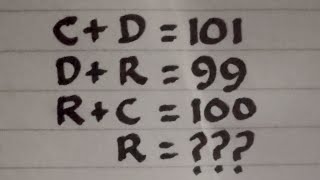 C + D = 101
D + R = 99
R + C = 100
R = ???